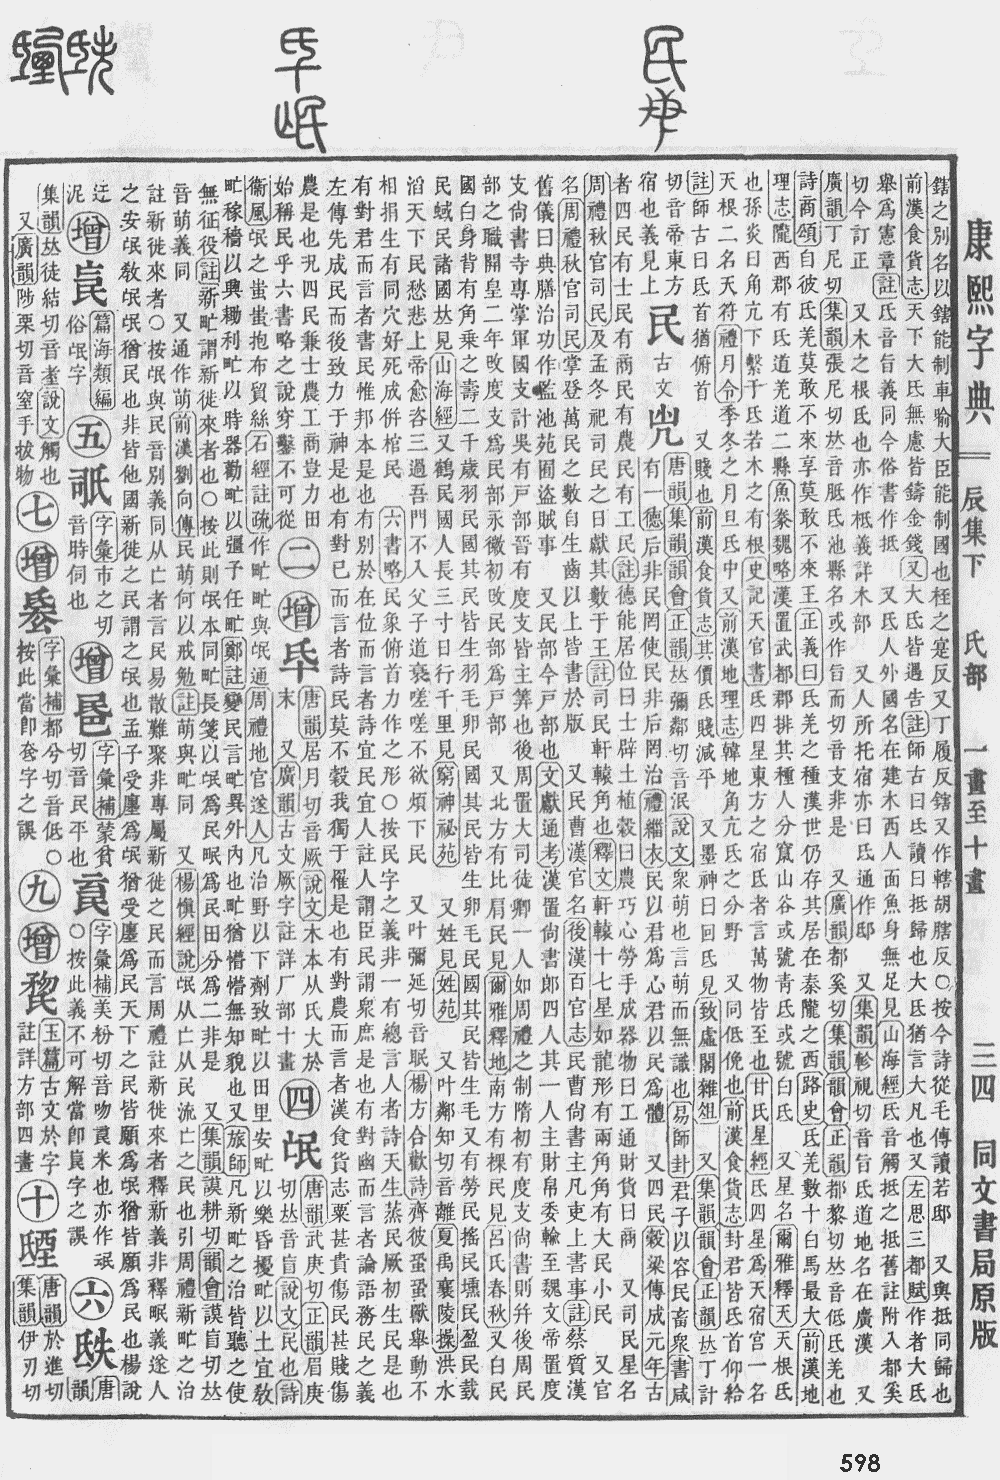 康熙字典 辰集下 氏部 一畫至十畫 三四 同文書局原版
鎋之別名以鎋能制車喻大臣能制國也桎之寔反又丁履反鎋又作轄胡瞎反○按今詩從毛傳讀若邸 又與抵同歸也
前漢食貨志天下大氐無慮皆鑄金錢又大氐皆遇告註師古曰氐讀曰抵歸也大氐猶言大凡也又左思三都賦作者大氐
舉爲憲章註氐音旨義同今俗書作抵 又氐人外國名在建木西人面魚身無足見山海經氐音觸抵之抵舊註附入都奚
切今訂正 又木之根氐也亦作柢義詳木部 又人所托宿亦曰氐通作邸 又集韻軫視切音旨氐道地名在廣漢 又
廣韻丁尼切集韻張尼切𠀤音胝氐池縣名或作𣱅而切音支非是 又廣韻都奚切集韻韻會正韻都黎切𠀤音低氐羌也
詩商頌自彼氐羌莫敢不來享莫敢不來王正義曰氐羌之種漢世仍存其居在秦隴之西路史氐羌數十白馬最大前漢地
理志隴西郡有氐道羌道二縣魚豢魏略漢置武都郡排其種人分竄山谷或號靑氐或號白氐 又星名爾雅釋天天根氐
也孫炎曰角亢下繫于氐若木之有根史記天官書氐四星東方之宿氐者言萬物皆至也甘氏星經氐四星爲天宿宮一名
天根二名天符禮月令季冬之月旦氐中又前漢地理志韓地角亢氐之分野 又同低俛也前漢食貨志封君皆氐首仰給
註師古曰氐首猶俯首 又賤也前漢食貨志其價氐賤減平 又墨神曰回氐見致虛閣雜俎 又集韻韻會正韻𠀤丁計
切音帝東方
宿也義見上
民
古文
𠘽
唐韻集韻韻會正韻𠀤彌鄰切音泯說文衆萌也言萌而無識也易師卦君子以容民畜衆書咸
有一德后非民罔使民非后罔治禮緇衣民以君爲心君以民爲體 又四民穀梁傳成元年古
者四民有士民有商民有農民有工民註德能居位曰士辟土植穀曰農巧心勞手成器物曰工通財貨曰商 又司民星名
周禮秋官司民及孟冬祀司民之日獻其數于王註司民軒轅角也釋文軒轅十七星如龍形有兩角角有大民小民 又官
名周禮秋官司民掌登萬民之數自生齒以上皆書於版 又民曹漢官名後漢百官志民曹尙書主凡吏上書事註蔡質漢
舊儀曰典膳治功作監池苑囿盜賊事 又民部今戸部也文獻通考漢置尙書郞四人其一人主財帛委輸至魏文帝置度
支尙書寺專掌軍國支計吳有戸部晉有度支皆主筭也後周置大司徒卿一人如周禮之制隋初有度支尙書則幷後周民
部之職開皇二年攺度支爲民部永徽初攺民部爲戸部 又北方有比肩民見爾雅釋地南方有祼民見呂氏春秋又白民
國白身背有角乘之壽二千歲羽民國其民皆生羽毛卵民國其民皆生卵 又毛民國其民皆生毛又有勞民搖民壎民盈民蛓
民蜮民諸國𠀤見山海經又鶴民國人長三寸日行千里見窮神祕苑 又姓見姓苑 又叶鄰知切音離夏禹襄陵操洪水
滔天下民愁悲上帝愈咨三過吾門不入父子道衰嗟嗟不欲煩下民 又叶彌延切音眠楊方合歡詩齊彼蛩蛩獸舉動不
相捐生有同穴好死成併棺民 六書略民象俯首力作之形○按民字之義毛非一有總言人者詩天生蒸民厥初生民是也
有對君而言者書民惟邦本是也有別於在位而言者詩宜民宜人註人謂臣民謂衆庶是也有對幽而言者論語務民之義
左傳先成民而後致力于神是也有對已而言者詩民莫不穀我獨于罹是也有對農而言者漢食貨志粟甚貴傷民甚賤傷
農是也況四民兼士農工商豈力田
始稱民乎六書略之說穿鑿不可從
二
增
𣱆
唐韻居月切音厥說文木本从氏大於
末 又廣韻古文厥字註詳厂部十畫
四
氓
唐韻武庚切正韻眉庚
切𠀤音盲說文民也詩
衞風氓之蚩蚩抱布貿絲石經註疏作甿甿與氓通周禮地官遂人凡治野以下劑致甿以田里安甿以樂昏擾甿以土宜敎
甿稼穡以興耡利甿以時器勸甿以彊予任甿鄭註變民言甿異外內也甿猶懵懵無知貌也又旅師凡新甿之治皆聽之使
無征役註新甿謂新徙來者也○按此則氓本同甿長箋以氓爲民眠爲民田分爲二非是 又集韻謨耕切韻會謨盲切𠀤
音萌義同 又通作萌前漢劉向傳民萌何以戒勉註萌與甿同 又楊愼經說氓从亡从民流亡之民也引周禮新甿之治
註新徙來者○按氓與民音別義同从亡者言民易散難聚非專屬新徙之民而言周禮註新徙來者釋新義非釋眠義遂人
之安氓敎氓猶民也非皆他國新徙之民謂之氓也孟子受廛爲氓猶受廛爲民天下之民皆願爲氓猶皆願爲民也楊說
迂
泥
增
㫯
篇海類編
俗氓字
五
𣱉
字彙市之切
音時伺也
增
𣱊
字彙補蒙貧
切音民平也
𣱋
字彙補美粉切音吻𩚬米也亦作氓
○按此義不可解當卽㫯字之譌
六
𣱌
唐韻
集韻𠀤徒結切音耊說文觸也
又廣韻陟栗切音窒手拔物
七
增
𣱍
字彙補都兮切音低○
按此當卽卺字之譌
九
增
𣱎
玉篇古文於字
註詳方部四畫
十
𣱐
唐韻於進切
集韻伊刃切
598